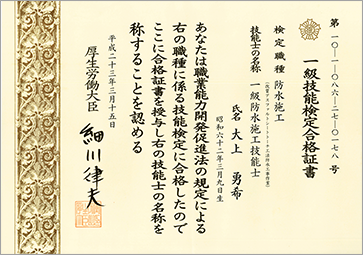 第一〇-一-〇八六-二七-〇一七八号
一級技能検定合格証書
検定職種 防水施工
技能士の名称 一級防水施工技能士
氏名 大上勇希
昭和六二年三月九日生
あなたは職業能力開発促進法の規定による
右の職種に係る技能検定に合格したので
ここに合格証書を授与し右の技能士の名称を
称することを認める
平成二十三年三月十五日
厚生労働大臣 細川律夫